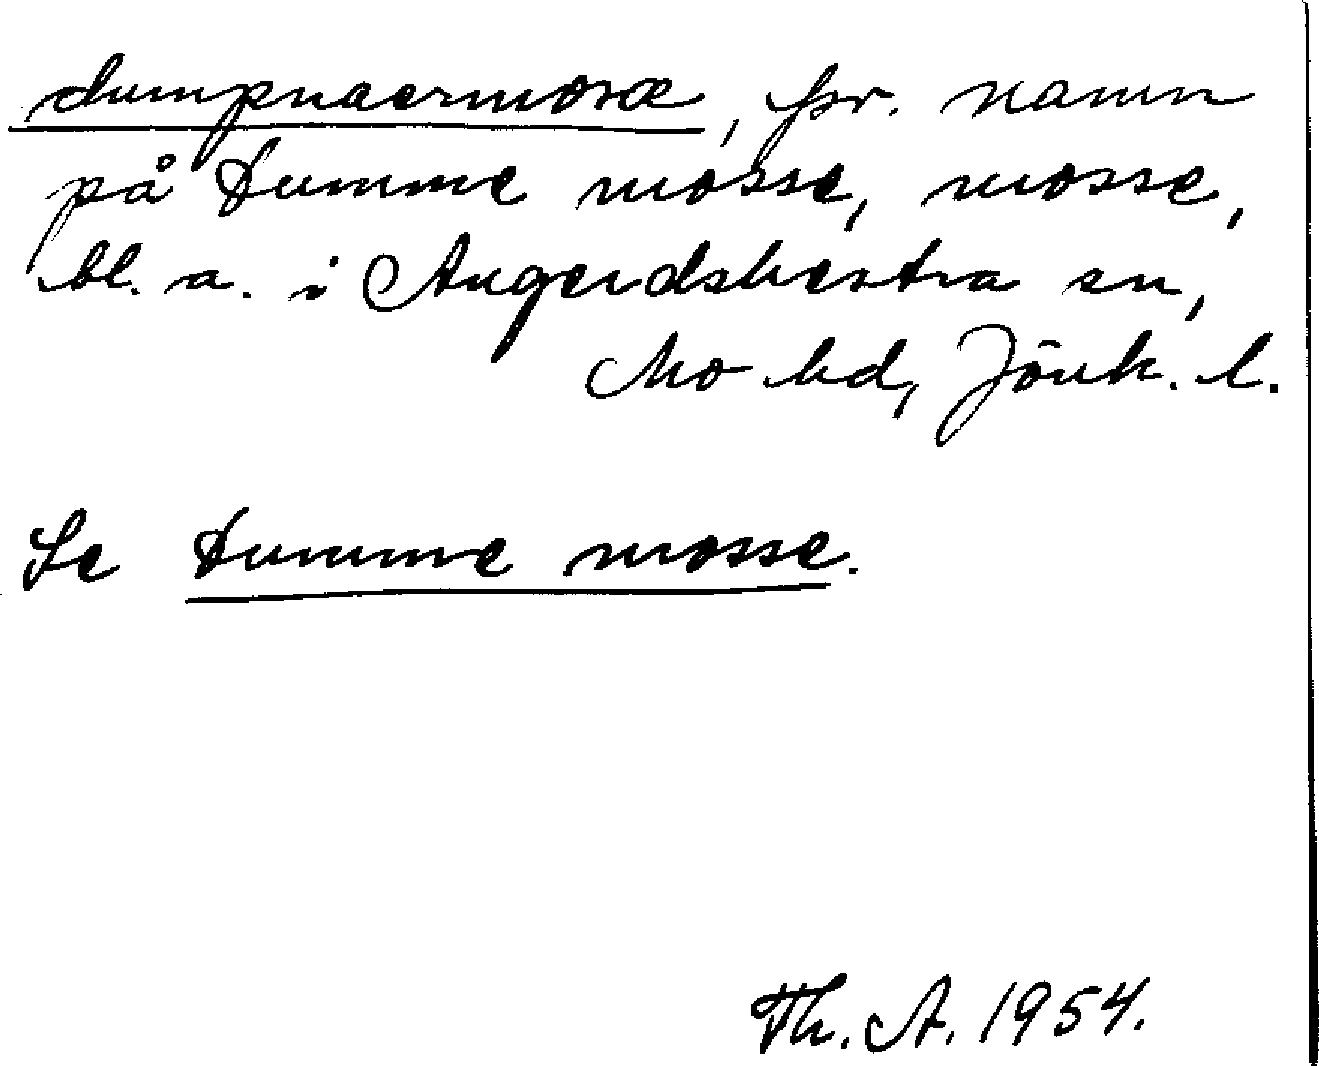 dumpnaermosæ, fsv. namn
på Dumme mosse, mosse,
bl. a. i Angerdshestra sn,
Mo hd, Jönk. l.
Se Dumme mosse.
Th. A. 1954.